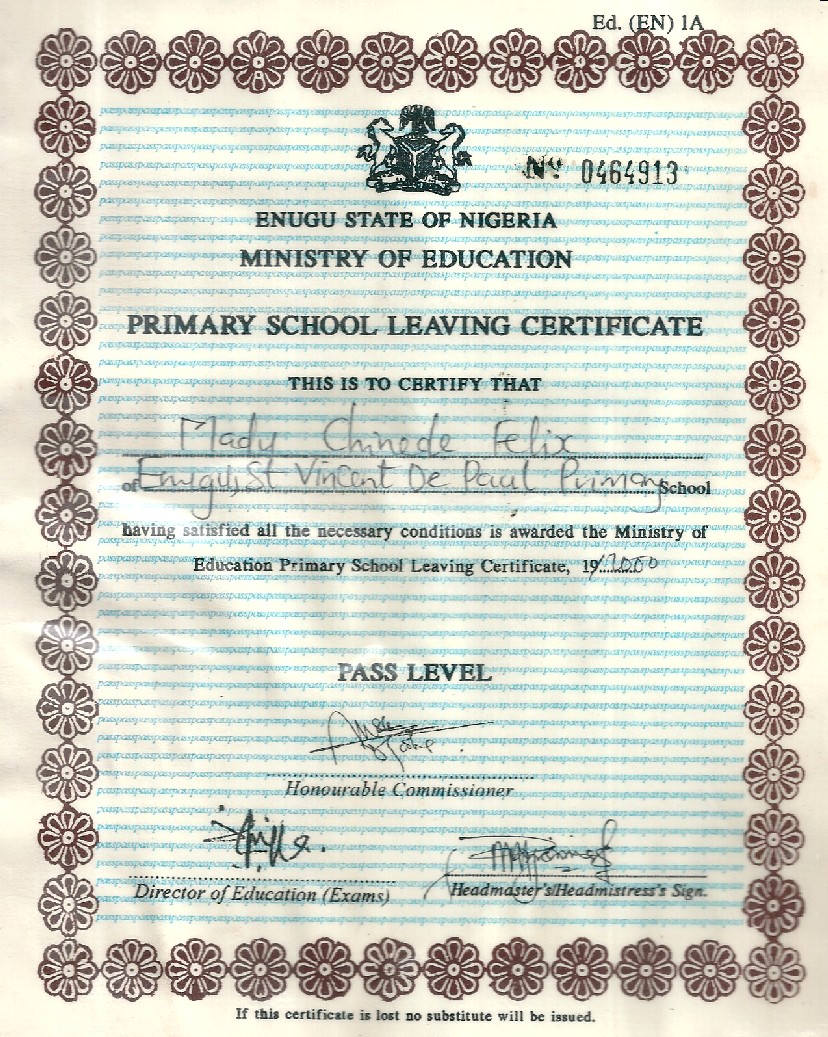 Ed. (EN) 1A
Nº 0464913
ENUGU STATE OF NIGERIA
MINISTRY OF EDUCATION
PRIMARY SCHOOL LEAVING CERTIFICATE
THIS IS TO CERTIFY THAT
Mady Chinede Felix
of Enugu, St Vincent De Paul Primary School
having satisfied all the necessary conditions is awarded the Ministry of
Education Primary School Leaving Certificate, 19 2000
PASS LEVEL
Honourable Commissioner
Director of Education (Exams)
Headmaster's/Headmistress's Sign.
If this certificate is lost no substitute will be issued.